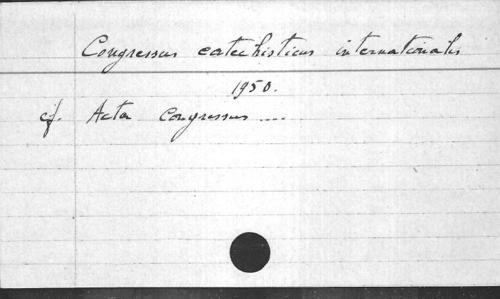 Congressus catechisticus internationalis
1950.
cf. Acta Congressus ....